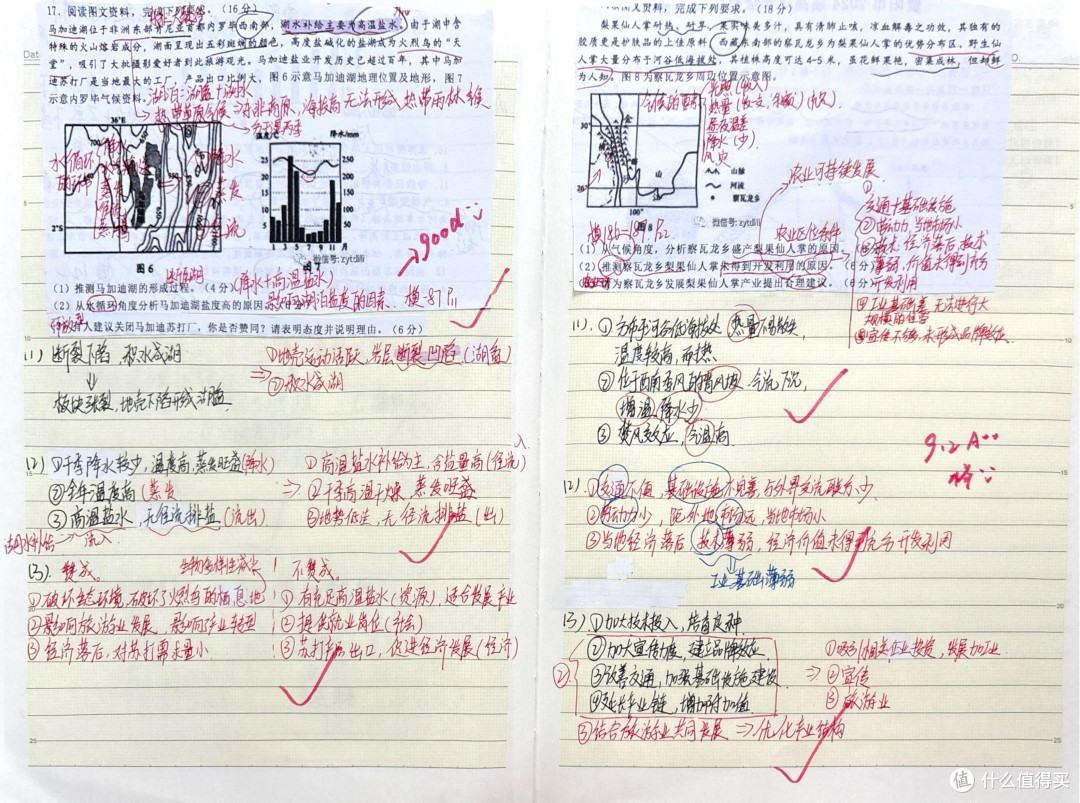 17. 阅读图文资料，完成下列要求。（16分）
马加迪湖位于非洲东部肯尼亚首都内罗毕西南部，湖水补给主要为高温盐水。由于湖中含
特殊的火山熔岩成分，湖面呈现出五彩斑斓的颜色，高度盐碱化的盐湖成为火烈鸟的“天
堂”，吸引了大批摄影爱好者到此旅游观光。马加迪盐业开发历史已超过百年，其中马加
迪苏打厂是当地最大的工厂，产品出口比例大。图6示意马加迪湖地理位置及地形，图7
示意内罗毕气候资料。
湖泊：湖盆+湖水
热带草原气候
36°E
2°S
水循环
降水
蒸发
图6
温度/℃
降水/mm
250
200
150
100
50
0
1 3 5 7 9 11 月
微信号: zytdili
图7
good
(1) 推测马加迪湖的形成过程。（4分）
断陷湖
降水+高温盐水
(2) 从水循环角度分析马加迪湖盐度高的原因。
影响湖泊盐度的因素、横-87
有人建议关闭马加迪苏打厂，你是否赞同？请表明态度并说明理由。（6分）
(1) 断裂下陷，积水成湖
板块张裂，地壳下陷形成湖盆
①地壳运动活跃，岩层断裂凹陷（湖盆）
②积水成湖
(2) ①干季降水较少，温度高，蒸发旺盛（降水）
②全年温度高（蒸发
③高温盐水，无径流排盐（流出）
湖水补给→流入
①高温盐水补给为主，含盐量高（径流入）
②干季高温干燥，蒸发旺盛
③地势低洼，无径流排盐（出）
(3). 赞成。
生物多样性减少
①破坏生态环境，破坏了火烈鸟的栖息地
②影响旅游业发展，影响产业转型
③经济落后，对苏打需求量小
不赞成。
①有充足高温盐水（资源），适合发展产业
②提供就业岗位（社会）
③苏打产品出口，促进经济发展（经济）
文资料，完成下列要求。（18分）
梨果仙人掌耐热、耐旱，果实味美多汁，具有清肺止咳，凉血解毒之功效，其独有的
胶质更是护肤品的上佳原料。西藏东南部的察瓦龙乡为梨果仙人掌的优势分布区，野生仙
人掌大量分布于河谷低海拔处，其植株高度可达4-5米，虽花鲜果艳，密集成林，但却鲜
为人知。图8为察瓦龙乡周边位置示意图。
光照（收入）
昼夜温差
降水（少）
风
26°
100°
山脉
河流
察瓦龙乡
图8
微信号: zytdili
农业可持续发展
农业区位条件
横186-189
(1) 从气候角度，分析察瓦龙乡盛产梨果仙人掌的原因。
(2) 推测察瓦龙乡梨果仙人掌未得到开发利用的原因。（6分）
请为察瓦龙乡发展梨果仙人掌产业提出合理建议。（6分）
①交通+基础设施
②劳动力，当地市场小
③技术、经济落后，技术
薄弱，价值未得到充分
开发利用
④工业基础差，无法进行大
规模的生产
⑤宣传不够，未形成品牌效应
(1). ①分布于河谷低海拔处，热量不易散失，
温度较高，而热
②位于西南季风的背风坡，气流下沉，
增温，降水少
③焚风效应，气温高
9.2 A
(2). ①交通不便，基础设施不完善，与外界交流联系少
②劳动力少，距外地市场远，当地市场小
③当地经济落后，技术薄弱，经济价值未得到充分开发利用
工业基础薄弱
(3) ①加大技术投入，培育良种
②加大宣传力度，建立品牌效应
③改善交通，加强基础设施建设
④延长产业链，增加附加值
③结合旅游业共同发展⇒优化产业结构
①吸引相关企业投资，发展加工业
②宣传
③旅游业
值 什么值得买